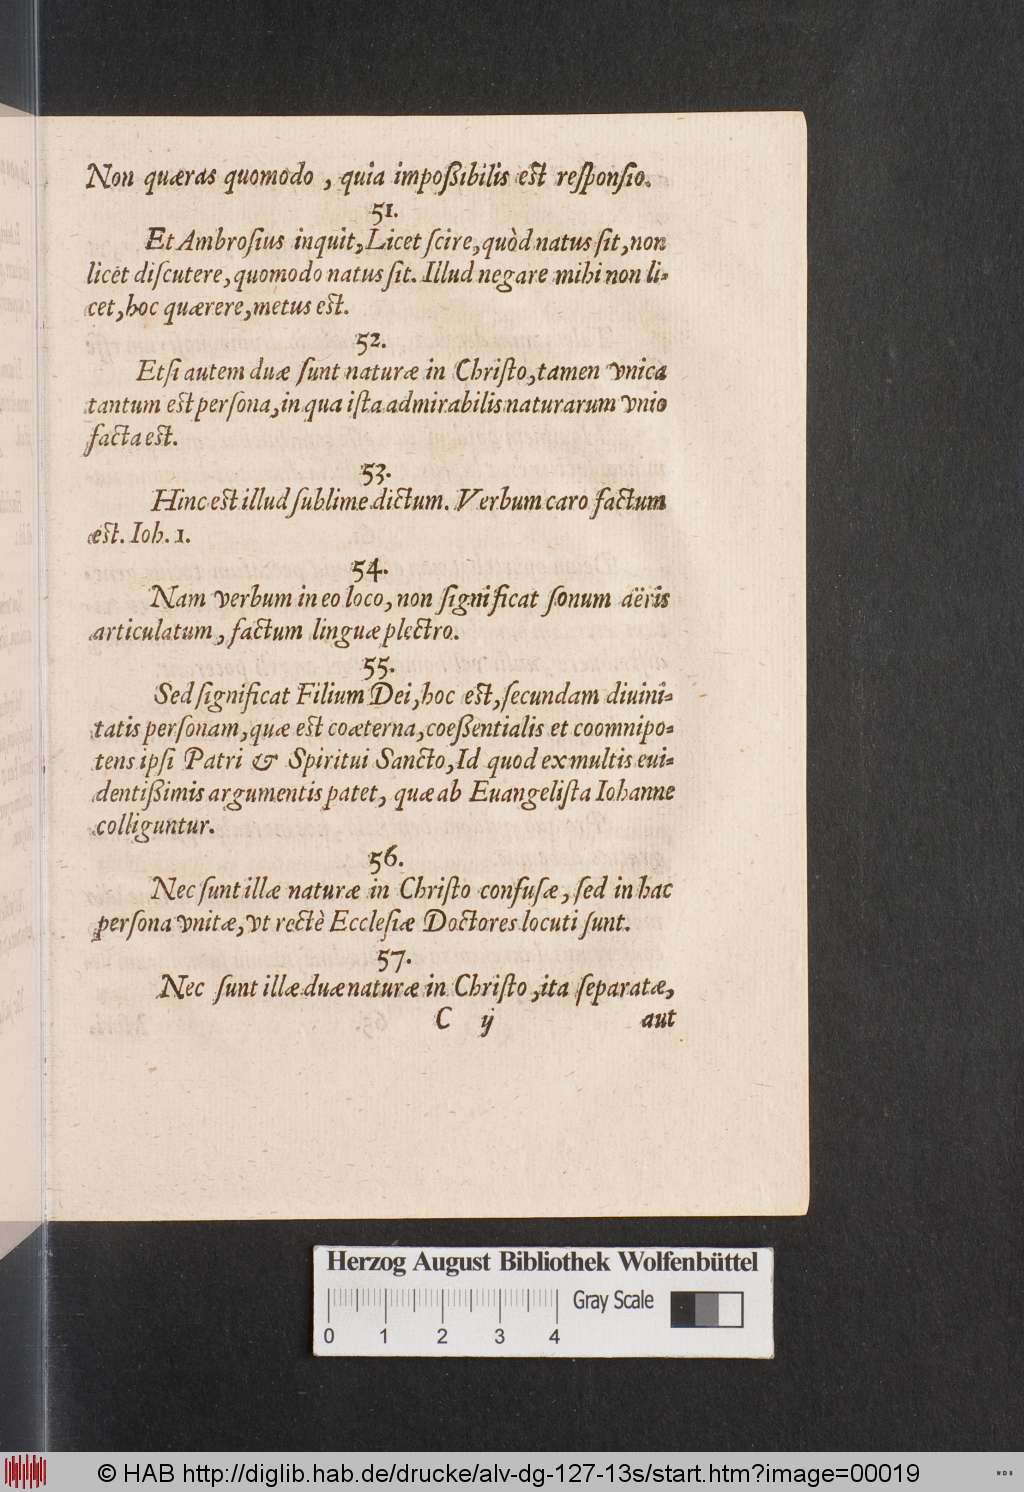 Non quæras quomodo, quia impoßibilis est responsio.
51.
Et Ambrosius inquit, Licet scire, quòd natus sit, non
licet discutere, quomodo natus sit. Illud negare mihi non li-
cet, hoc quærere, metus est.
52.
Etsi autem duæ sunt naturæ in Christo, tamen vnica
tantum est persona, in qua ista admirabilis naturarum vnio
facta est.
53.
Hinc est illud sublime dictum. Verbum caro factum
est. Ioh. 1.
54.
Nam verbum in eo loco, non significat sonum aëris
articulatum, factum linguæ plectro.
55.
Sed significat Filium Dei, hoc est, secundam diuini-
tatis personam, quæ est coæterna, coeßentialis et coomnipo-
tens ipsi Patri & Spiritui Sancto, Id quod ex multis eui-
dentißimis argumentis patet, quæ ab Euangelista Iohanne
colliguntur.
56.
Nec sunt illæ naturæ in Christo confusæ, sed in hac
persona vnitæ, vt rectè Ecclesiæ Doctores locuti sunt.
57.
Nec sunt illæ duæ naturæ in Christo, ita separatæ,
C ij aut
Herzog August Bibliothek Wolfenbüttel
Gray Scale
0 1 2 3 4
© HAB http://diglib.hab.de/drucke/alv-dg-127-13s/start.htm?image=00019